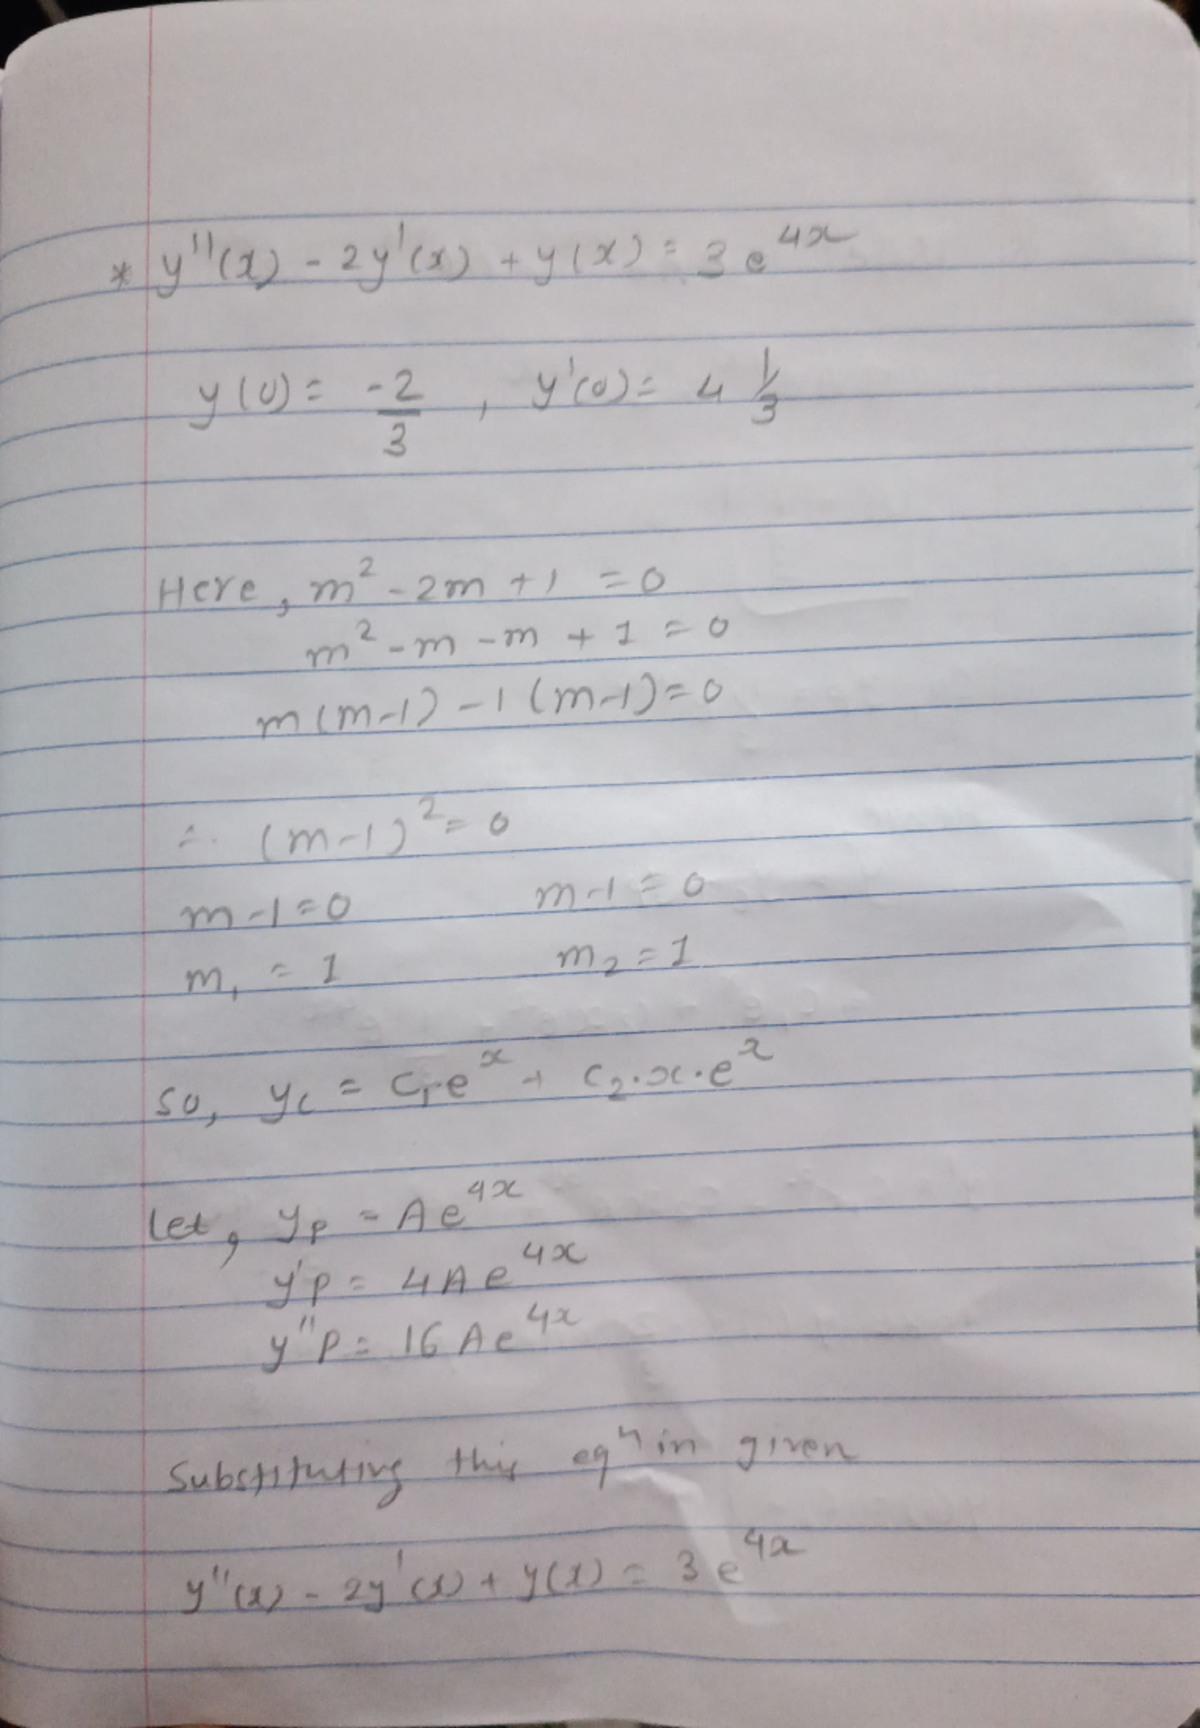 * y''(x) - 2y'(x) + y(x) = 3e^4x
y(0) = -2/3 , y'(0) = 4 1/3
Here, m² - 2m + 1 = 0
m² - m - m + 1 = 0
m(m-1) - 1(m-1) = 0
∴ (m-1)² = 0
m-1=0 m-1=0
m₁ = 1 m₂ = 1
So, yc = C₁e^x + C₂·x·e^x
Let, yp = Ae^4x
y'p = 4Ae^4x
y''p = 16Ae^4x
Substituting this eqn in given
y''(x) - 2y'(x) + y(x) = 3e^4x